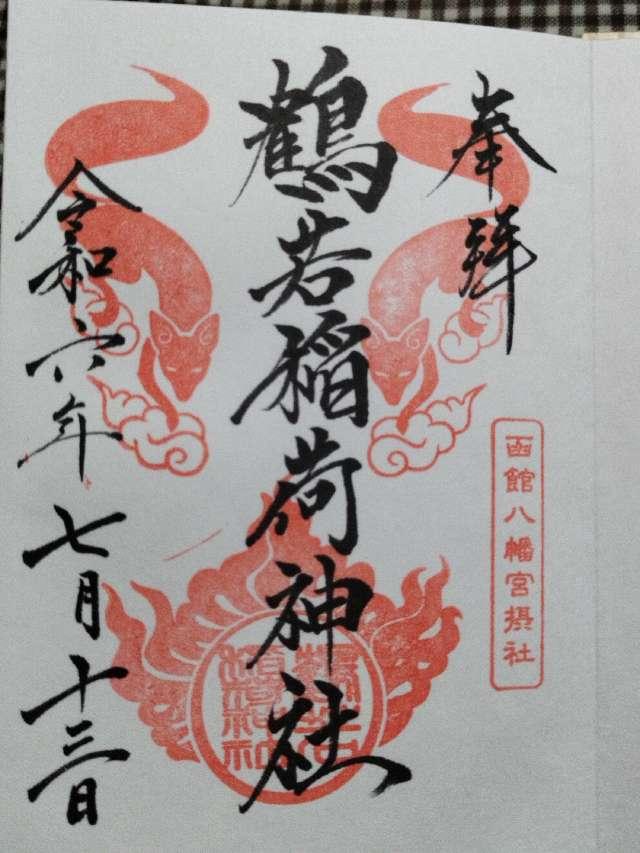 奉拝
函館八幡宮摂社
鶴若稲荷神社
令和六年七月十三日